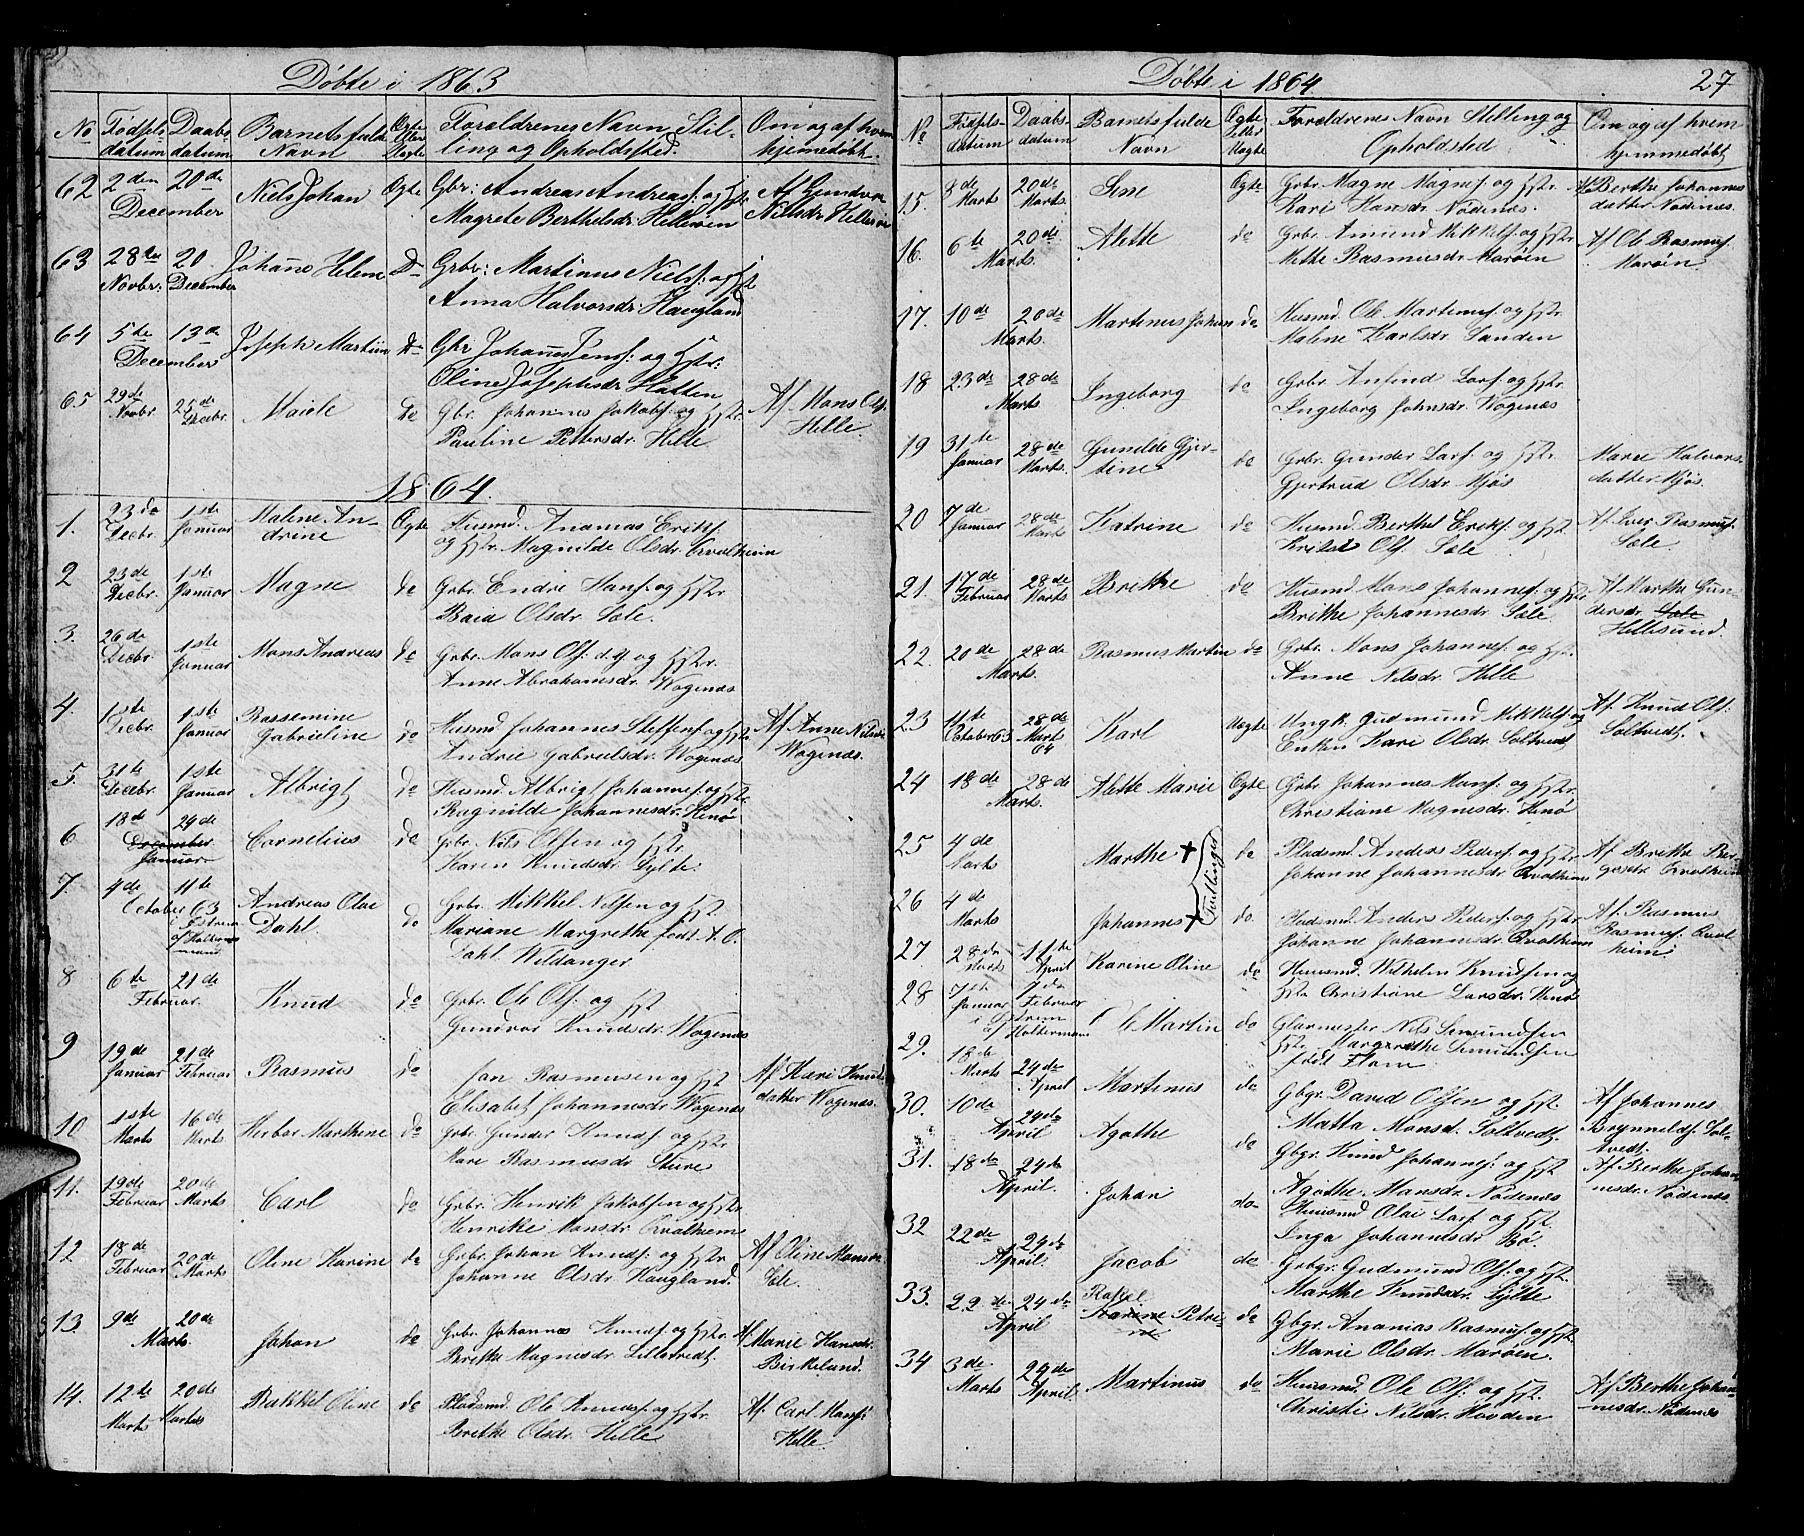 Döbte i 1863
No Födsels-datum Daabs-datum Barnets fulde Navn Ægte eller Uægte Foreldrenes Navn Stil-ling og Opholdsted. Om og af hvem hjemedøbt.
62 2den December 20de Niels Johan Ægte Gbr: Andreas Andreas: og Hstr Magrete Berthelsdr: Hellesøen Af Gundvor Nilsdr Hellesøen
63 28de Novbr: 20 December Johans Helene Do Grbr: Martinus Niels: og Hst Anna Halvorsdr: Haugland
64 5te December 13de Joseph Martiin Do Gbr Johans Jens: og Hstr: Oline Josephsdr Hatten
65 29de Novbr 25de Decbr. Maiele do Gbr. Johannes Jakobs: og Hstr. Pauline Pettersdr. Helle Af Mons Ols: Helle.
1864.
1. 23de Decbr. 1ste Januar Malene An-drine Ægte Husmd. Ananias Eriks: og Hstr. Magnilde Olsdr. Qvalheim
2 23de Decbr. 1ste Januar Magne do Grbr. Endre Hans: og Hstr Baia Olsdr. Sæle.
3. 26de Decbr. 1ste Januar Mons Andreas do Grbr. Mons Ols: d.y. og Hstr. Anne Abrahamsdr. Wogenæs
4. 1ste Decbr. 1ste Januar Rassemine Gabrieline do Husmd Johannes Steffens: og Hstr Andrie Gabrielsdr. Wogenæs Af Anne Nilsdr Wogenæs.
5. 31te Decbr. 1ste Januar Albrigt do Husmd Albrigt Johannes: og Hstr. Ragnilde Johannesdr. Henø
6. 18de December Januar 24de Cornelius do Grbr. Nils Olsen og Hstr. Karen Knudsdr. Sylte.
7. 4de October 63 11te Andreas Olai Dahl. do Grbr. Mikkel Nilsen og Hst. Mariane Margrethe født A. O. Dahl. Wildanger
8 6te Februar. 21de Knud do Grbr. Ole Ols: og Hst Gundvor Knudsdr. Wogenæs
9 19de Januar 21de Februar Rasmus do Jan Rasmusen og Hst Elisabet Johannesdr. Wogenæs Af Kari Knuds datter Wogenæs.
10 1ste Marts 16de Marts Herbor Marthine do Grbr. Gunder Knuds: og Hstr. Kari Rasmusdr. Sture
11. 19de Februar 20de Marts Carl do Grbr. Henrik Jakobsen og Hstr Henrikke Monsdr. Qvalheim
12 18de Februar 20de Marts Oline Karine do Grbr. Johan Knuds: og Hstr Johanne Olsdr. Haugland. Af Oline Monsdr.
13. 9de Marts. 20de Johan do Grbr. Johannes Knuds: og Hstr Brithe Magnesdr. Lilletvedt. Af Marie Hansdr. Birkeland.
14. 12te Marts 20de Marts Rakkel Oline do Pladsmd. Ole Knuds: og Hstr. Brithe Olsdr. Helle Af Carl Mons: Helle.
Döbte i 1864. 27
No Födsels-datum Daabs-datum Barnets fulde Navn Ægte Eller Uægte Foreldrenes Navn Stilling og Opholdsted Om og af hvem hjemmedøbt
15. 8de Marts 20de Marts. Sine Ægte Grbr. Magne Magnes: og Hstr. Kari Hansdr. Nödenæs. Af Berthe Johannes datter Nödenæs.
16. 6te Marts. 20de Alette do Grbr. Amund Mikkels: og Hstr. Mette Rasmusdr. Marøen Af Ole Rasmus: Marøen.
17. 10de Marts. 20de Martinus Johan do Husmd. Ole Martinus: og Hstr. Malene Karlsdr. Sanden
18 23de Marts. 28de Ingeborg do Grbr. Anfind Lars: og Hstr. Ingeborg Johnsdr. Wogenæs
19 31te Januar 28de Marts. Gunilde Gjer-tine do Grbr. Gunder Lars: og Hstr. Gjertrud Olsdr. Mjøs Marie Halvors-datter Mjøs.
20 7de Januar 28de Marts Katrine do Husmd. Berthel Eriks: og Hstr. Kristi Ols. Sæle Af Iver Rasmus: Sæle.
21. 17de Februar 28de Marts Brethe do Husmd Mons Johannes: og Hstr. Brithe Johannesdr. Sæle. Af Marthe Gun-dersdr. Sæle Hillesund.
22. 20de Marts. 28de Rasmus Martin do Grbr. Mons Johannes: og Hstr. Anne Nilsdr. Helle
23 11te October 63 28de Marts 64 Karl Uægte Ungk. Gudmund Mikkels: og Enken Kari Olsdr. Soltvedt Af Knud Ols: Soltvedt.
24 18de Marts. 28de Alette Marie Ægte Grbr. Johannes Mons: og Hstr. Christiane Magnesdr. Henø
25 4de Marts Marthe + Tvillinger do Pladsmd. Anders Peders: og Hstr Johanne Johannesdr Qvalheim Af Brithe Bør-gesdr. Qvalheim
26 4de Marts Johannes + do. Pladsmd. Anders Peders: og Hstr. Johanne Johannesdr. Qvalheim Af. Rasmus Rasmus: Qval-heim
27. 28de Marts 11te April Karine Oline do Huusmd. Wilhelm Knudsen og Hstr. Christiane Larsdr. Henø
28 7de Januar 7de Februar Ole Martin do Glarmester Nils Semundsen Hstr. Margrethe Semundsen født Flom.
29. 18de Marts 24de April Martinus do Gbgr. David Olsen og Hst. Matta Monsd. Soltvedt. Af Johannes Brynnelds: Sol-tvedt.
30. 10de April 24de Agathe do Gbgr. Knud Johannes: og Hst Agathe Mansdr. Nödenæs Af Berthe Johan-nesdr. Nödenæs.
31. 18de April. 24de Johan do Huusmd Olai Lars: og Hst. Inga Johannesdr Bø.
32 22de April. 24de Jacob do Grbgr. Gudmund Ols: og Hst. Marthe Knudsdr. Sylte
33. 22de April 24de Rakel Karine Petri-ne do Gbgr. Ananias Rasmus: og Hst. Marie Olsdr. Marøen.
34 3de Marts 24de April. Martinus do Huusmd. Ole Ols: og Hst. Christi Nilsdr. Hovden Af Berthe Johan-nesdr. Nödenæs